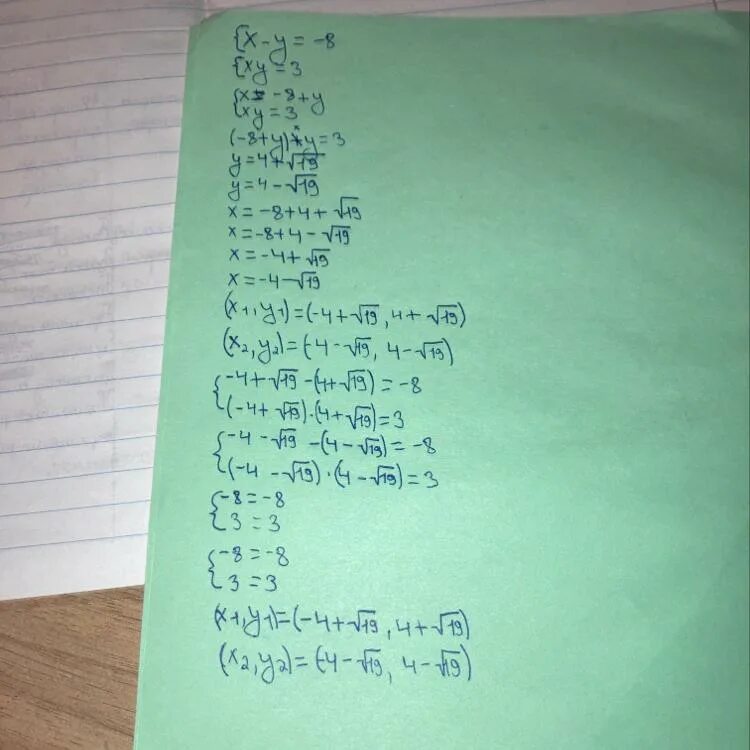 {x-y=-8
{xy=3
{x=-8+y
xy=3
(-8+y)*y=3
y=4+√19
y=4-√19
x=-8+4+√19
x=-8+4-√19
x=-4+√19
x=-4-√19
(x1,y1)=(-4+√19,4+√19)
(x2,y2)=(-4-√19, 4-√19)
{-4+√19-(4+√19)=-8
(-4+√19)·(4+√19)=3
{-4-√19-(4-√19)=-8
(-4-√19)·(4-√19)=3
{-8=-8
3=3
{-8=-8
3=3
(x1,y1)=(-4+√19, 4+√19)
(x2,y2)=(-4-√19, 4-√19)